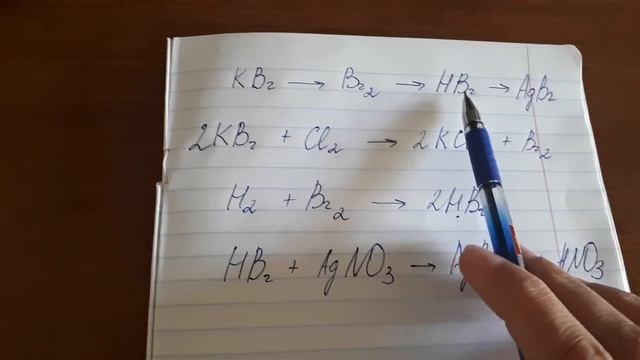 KBr → Br₂ → HBr → AgBr
2KBr + Cl₂ → 2KC + Br₂
H₂ + Br₂ → 2HBr
HBr + AgNO₃ → Ag HNO₃